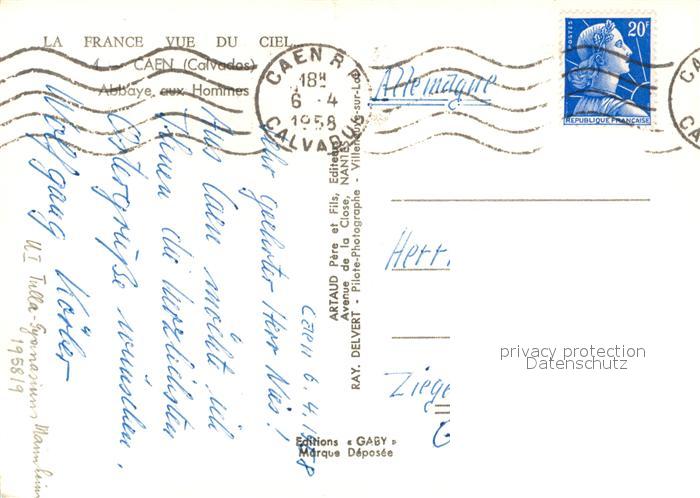 LA FRANCE VUE DU CIEL
CAEN (Calvados)
Abbaye aux Hommes
CAEN R.P.
18H
6 - 4
1958
CALVADOS
POSTES
20F
REPUBLIQUE FRANÇAISE
Allemagne
Caen 6. 4. 1958
Sehr geehrter Herr
Aus Caen möchte ich
Ihnen die herzlichsten
Ostergrüße wünschen.
Wolfgang Körber
UI Tulla-Gymnasium Mannheim
1958/9
ARTAUD Père et Fils, Editeurs
Avenue de la Close, NANTES
RAY. DELVERT - Pilote-Photographe - Villeneuve-sur-Lot
Editions « GABY »
Marque Déposée
Herr.
Ziege
privacy protection
Datenschutz